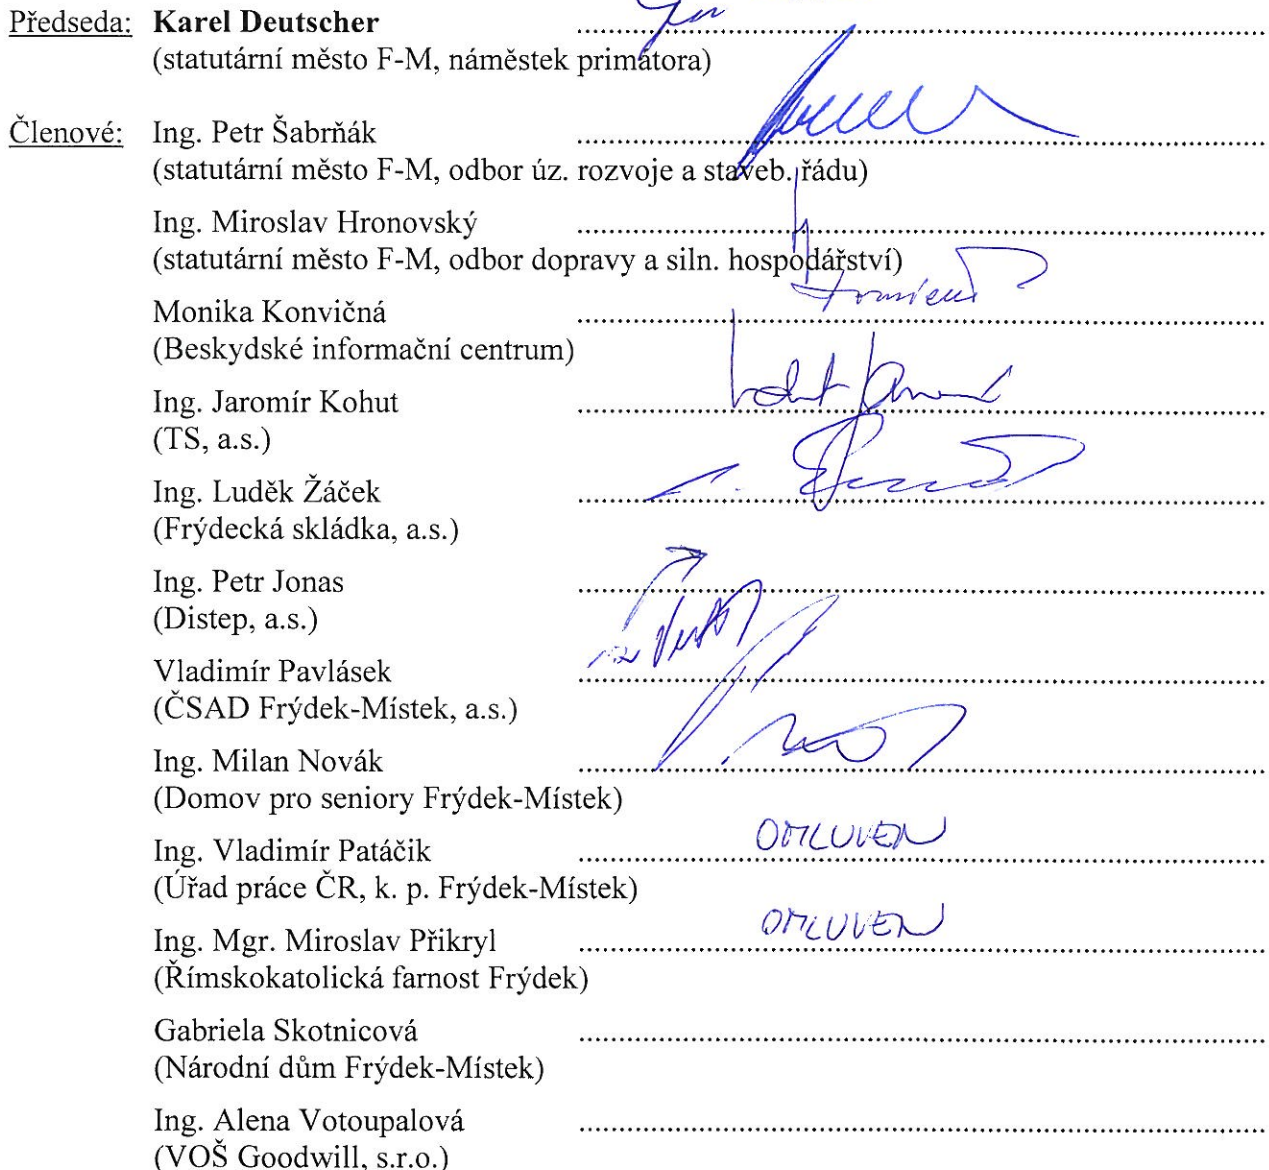 Předseda: Karel Deutscher
(statutární město F-M, náměstek primátora)
Členové: Ing. Petr Šabrňák
(statutární město F-M, odbor úz. rozvoje a staveb. řádu)
Ing. Miroslav Hronovský
(statutární město F-M, odbor dopravy a siln. hospodářství)
Monika Konvičná
(Beskydské informační centrum)
Ing. Jaromír Kohut
(TS, a.s.)
Ing. Luděk Žáček
(Frýdecká skládka, a.s.)
Ing. Petr Jonas
(Distep, a.s.)
Vladimír Pavlásek
(ČSAD Frýdek-Místek, a.s.)
Ing. Milan Novák
(Domov pro seniory Frýdek-Místek)
Ing. Vladimír Patáčik OMLUVEN
(Úřad práce ČR, k. p. Frýdek-Místek)
Ing. Mgr. Miroslav Přikryl OMLUVEN
(Římskokatolická farnost Frýdek)
Gabriela Skotnicová
(Národní dům Frýdek-Místek)
Ing. Alena Votoupalová
(VOŠ Goodwill, s.r.o.)